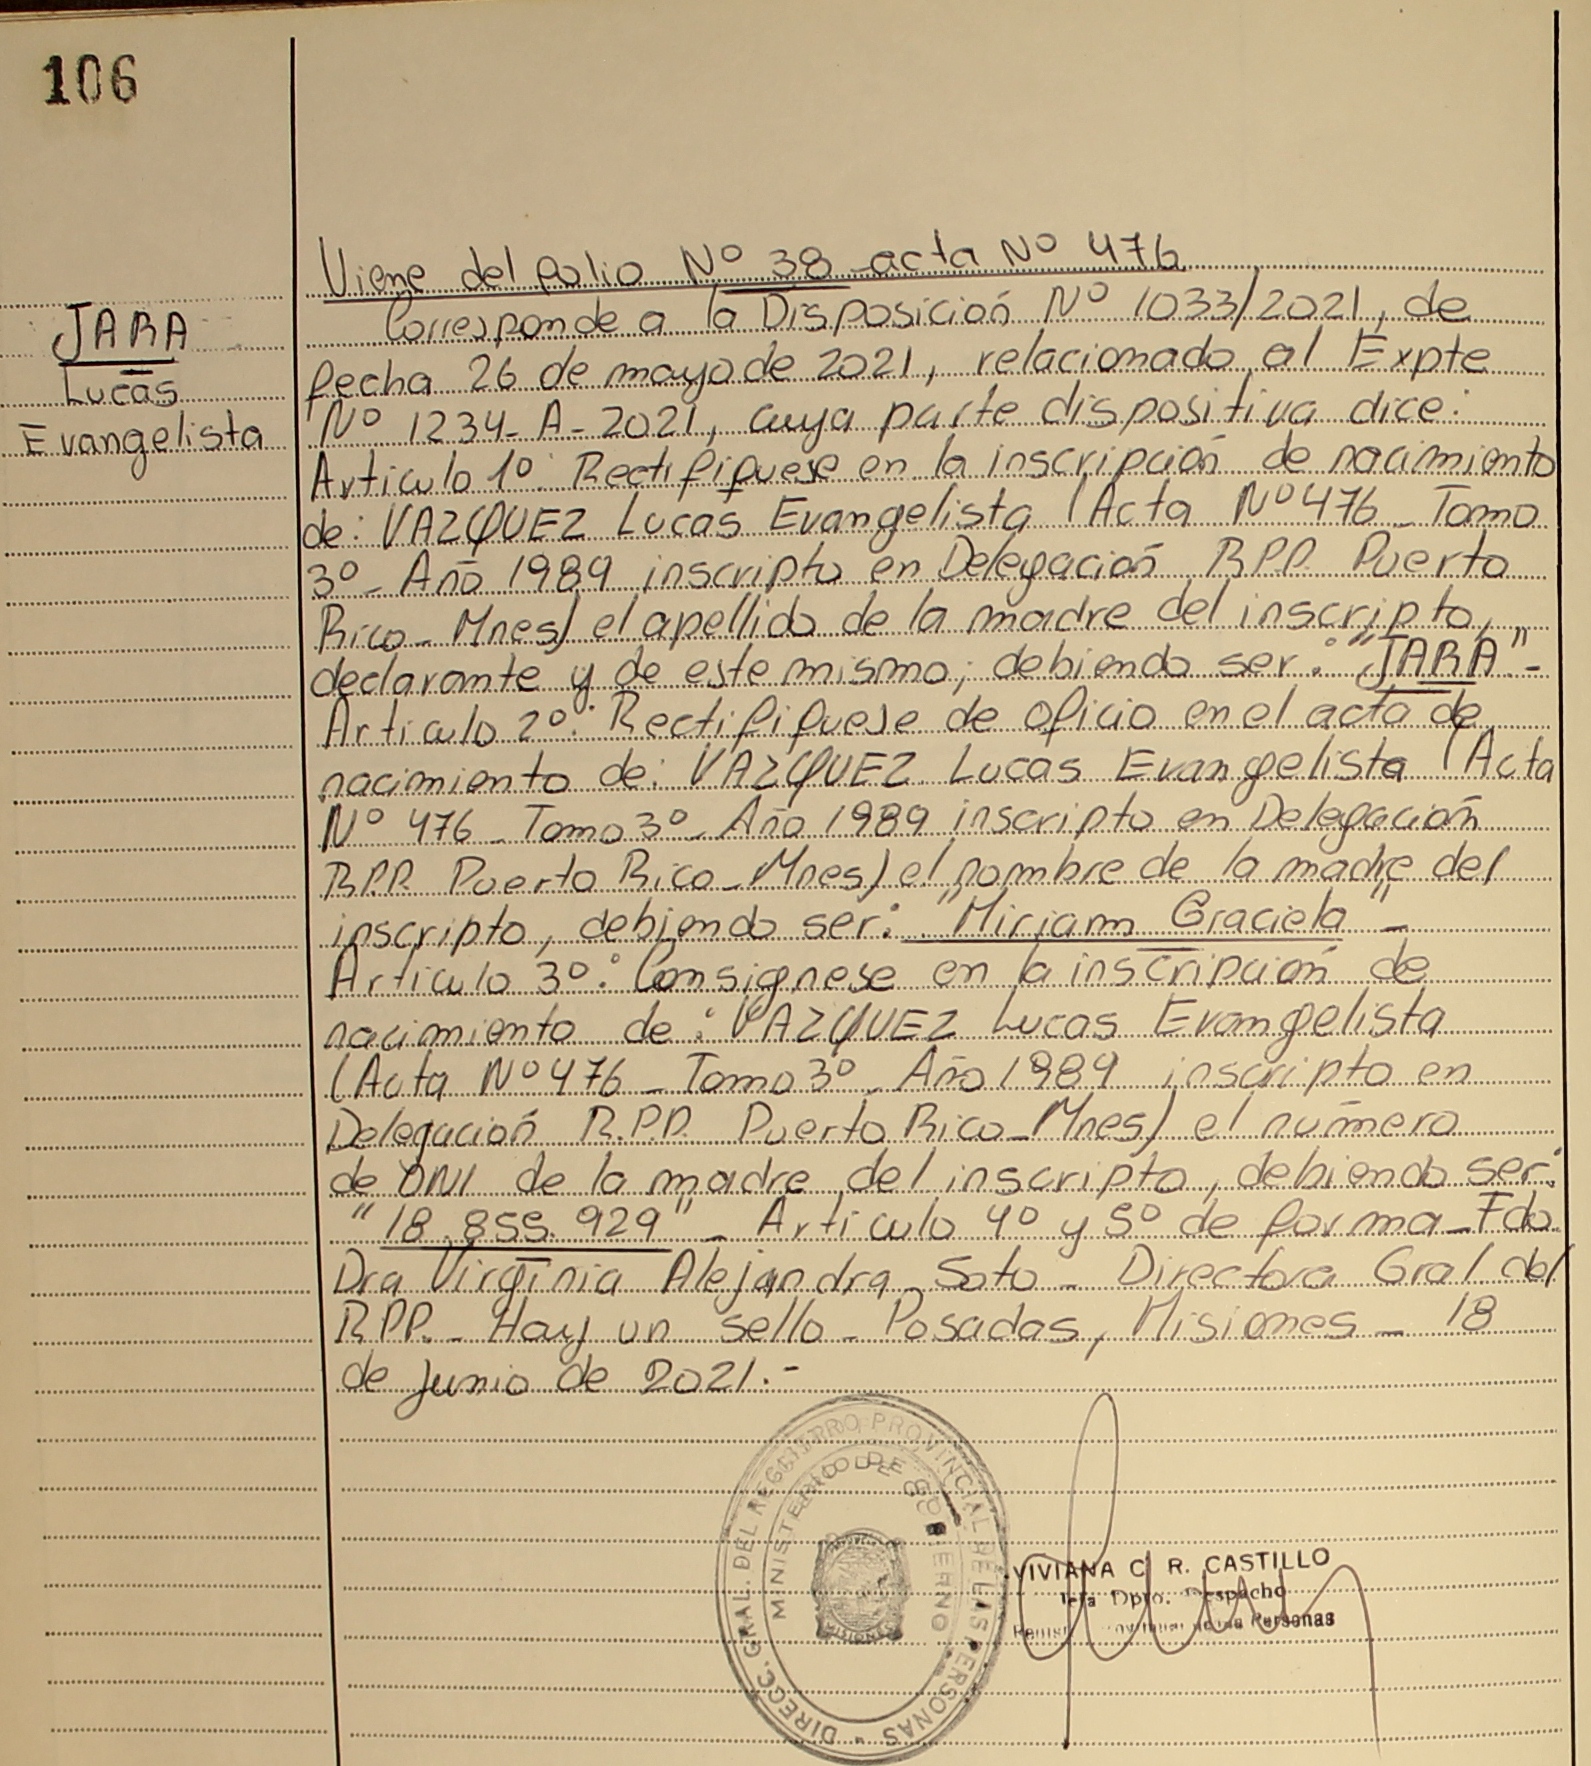 106
JARA
Lucas
Evangelista
Viene del folio Nº 38 acta Nº 476
Corresponde a la Disposición Nº 1033/2021, de
fecha 26 de mayo de 2021, relacionado al Expte
Nº 1234-A-2021, cuya parte dispositiva dice:
Artículo 1º: Rectifíquese en la inscripción de nacimiento
de: VAZQUEZ Lucas Evangelista (Acta Nº 476 - Tomo
3º - Año 1989 inscripto en Delegación RPP. Puerto
Rico - Mnes) el apellido de la madre del inscripto,
declarante y de este mismo; debiendo ser: "JARA" -
Artículo 2º: Rectifíquese de oficio en el acta de
nacimiento de: VAZQUEZ Lucas Evangelista (Acta
Nº 476 - Tomo 3º - Año 1989 inscripto en Delegación
R.P.P. Puerto Rico - Mnes) el nombre de la madre del
inscripto, debiendo ser: "Miriam Graciela" -
Artículo 3º: Consígnese en la inscripción de
nacimiento de: VAZQUEZ Lucas Evangelista
(Acta Nº 476 - Tomo 3º - Año 1989 inscripto en
Delegación R.P.P. Puerto Rico - Mnes) el número
de DNI de la madre del inscripto, debiendo ser:
"18.855.929" - Artículo 4º y 5º de forma - Fdo
Dra Virginia Alejandra Soto - Directora Gral del
RPP. - Hay un sello - Posadas, Misiones - 18
de junio de 2021.-
DIRECC. GRAL. DEL REGISTRO PROVINCIAL DE LAS PERSONAS
MINISTERIO DE GOBIERNO
MISIONES
VIVIANA C. R. CASTILLO
Jefa Dpto. Despacho
Personas